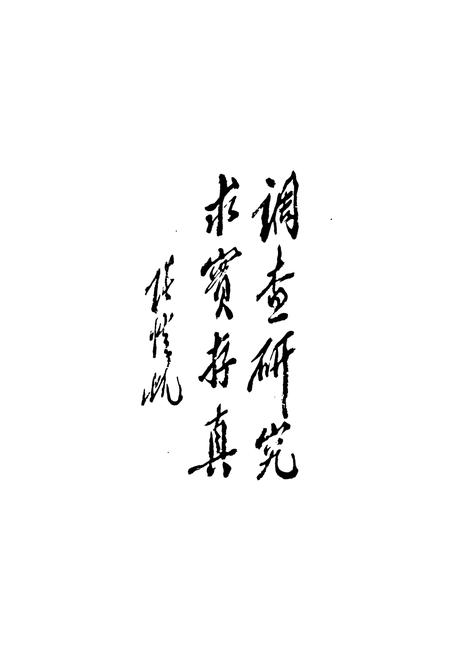 調查研究
求實存真
张愷帆